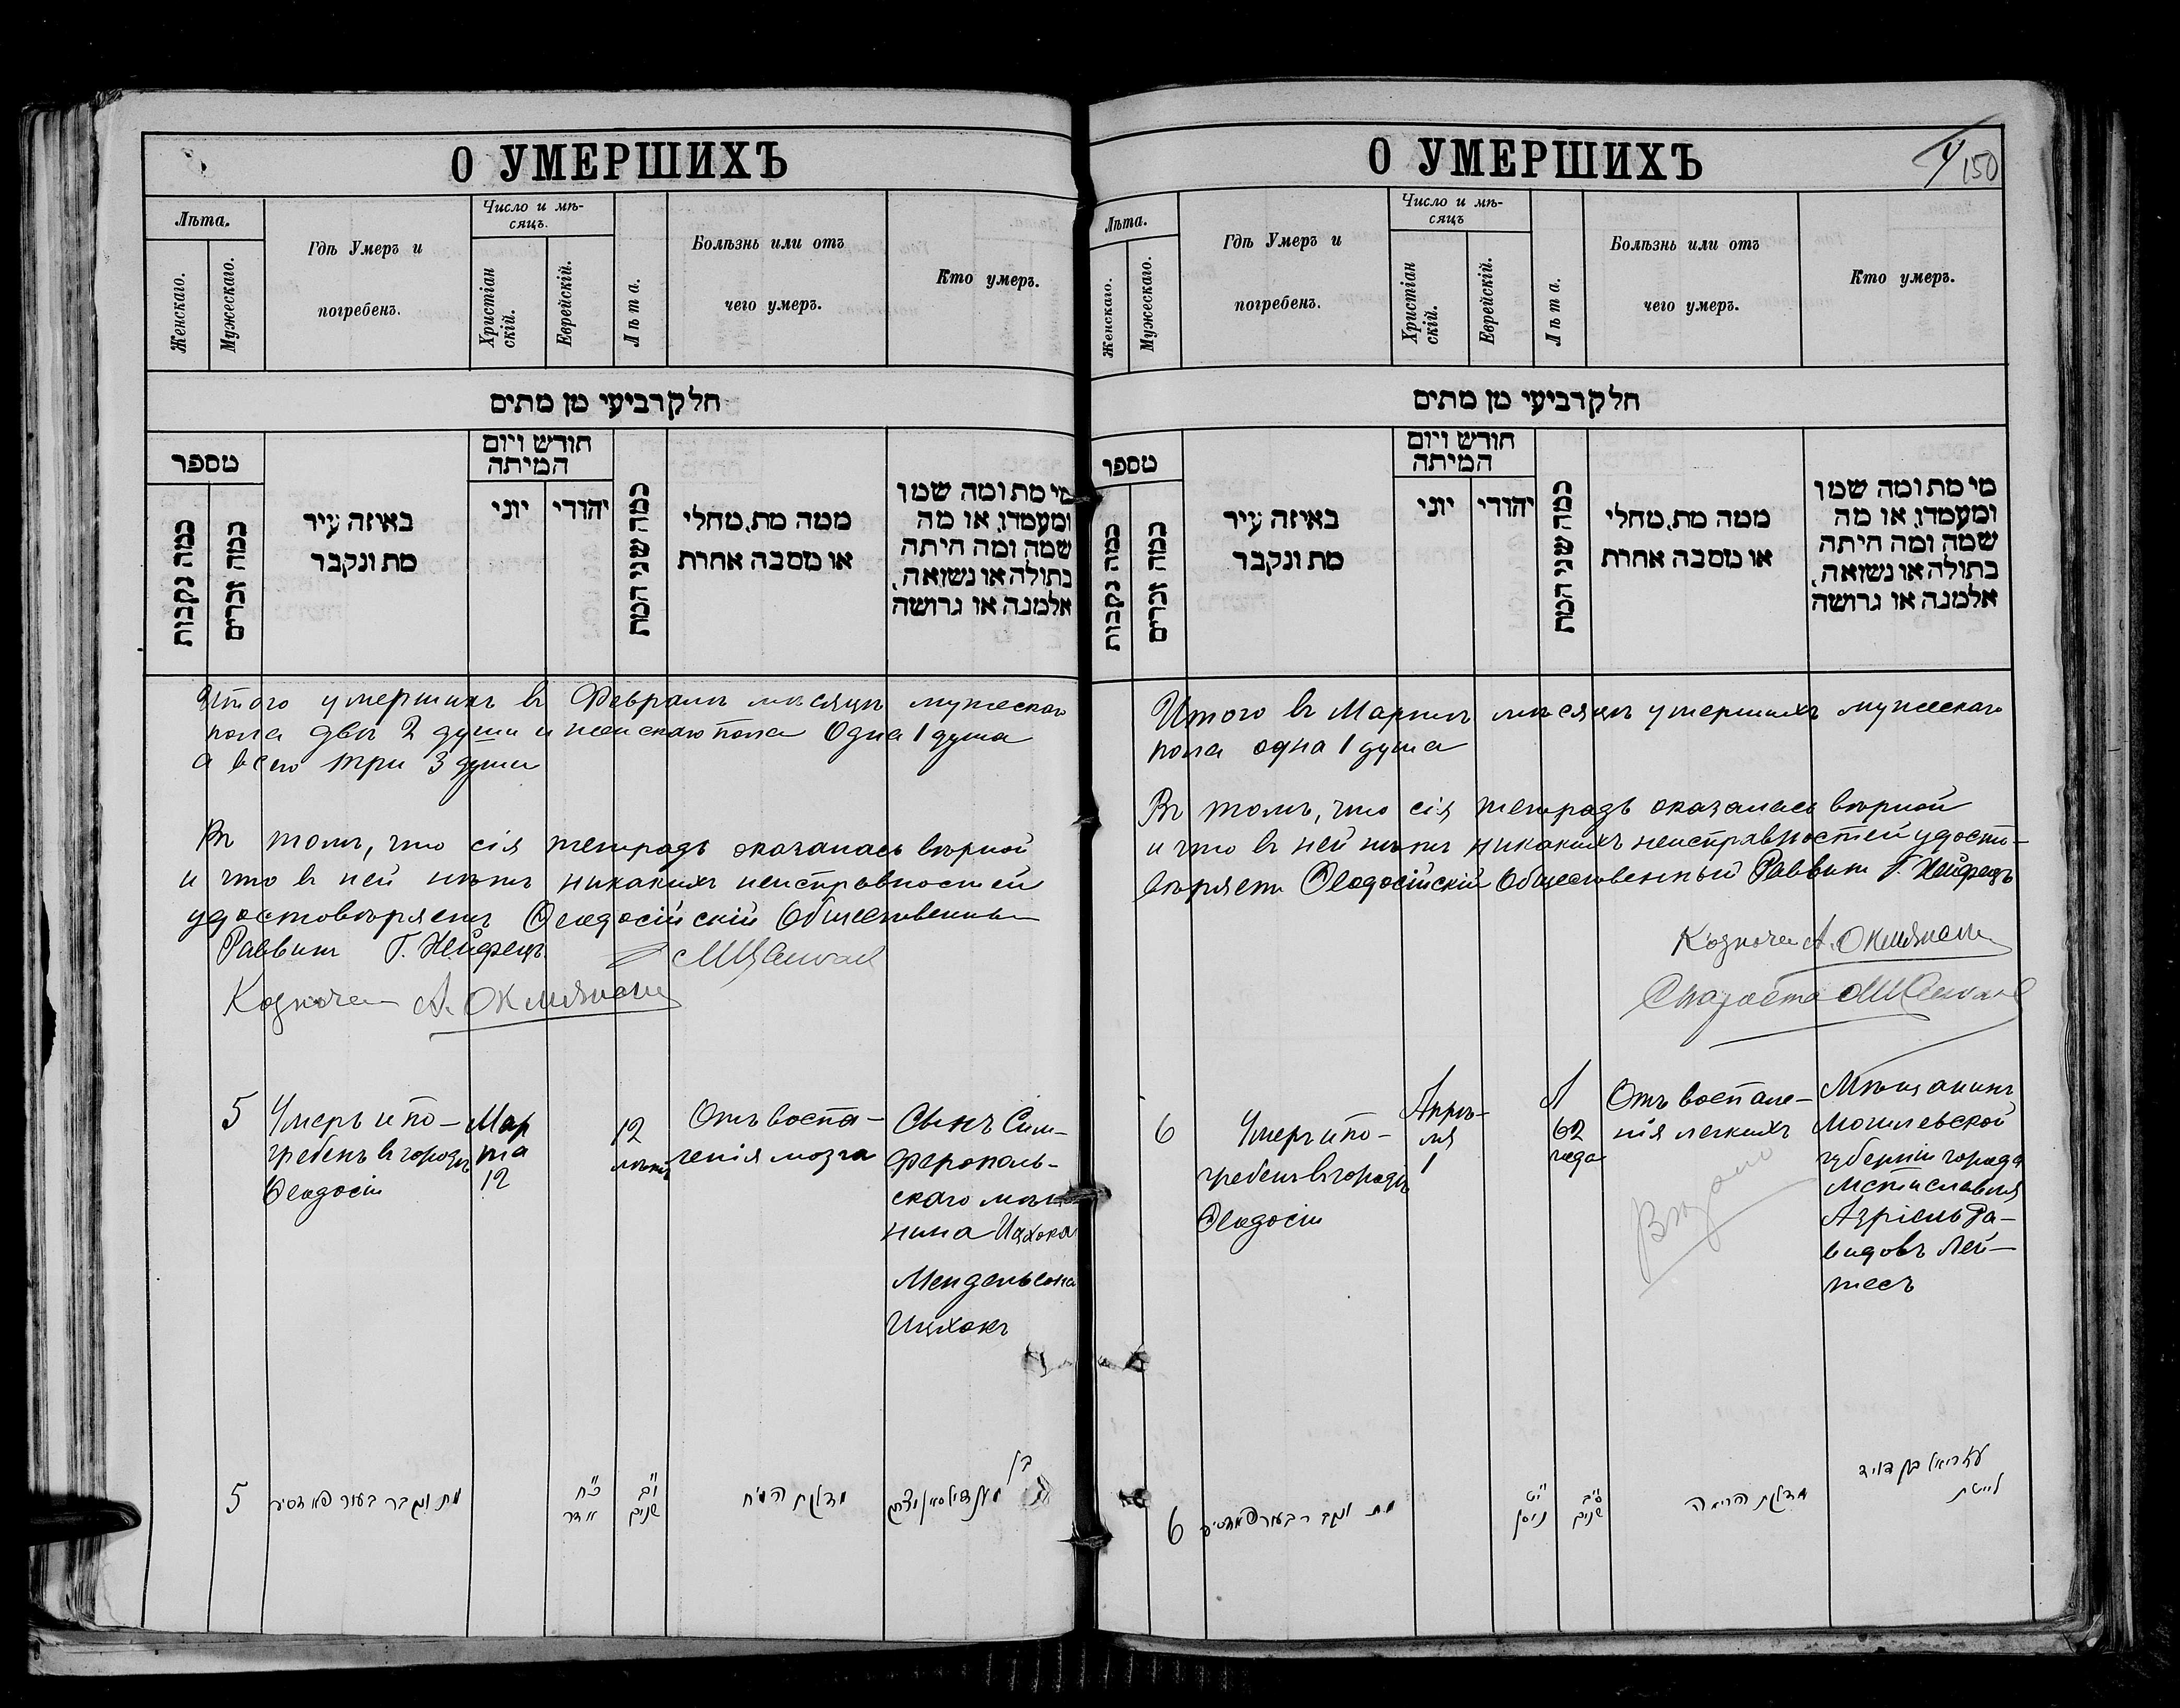 О УМЕРШИХЪ
Лѣта.
Женскаго.
Мужескаго.
Гдѣ Умеръ и
погребенъ.
Число и мѣ-
сяцъ.
Христіан
скій.
Еврейскій.
Лѣта.
Болѣзнь или отъ
чего умеръ.
Кто умеръ.
חלק רביעי מן מתים
מספר
כמה נקבות
כמה זכרים
באיזה עיר
מת ונקבר
חודש ויום
המיתה
יוני
יהודי
כמה שני המת
ממה מת, מחלי
או מסבה אחרת
מי מת ומה שמו
ומעמדו, או מה
שמה ומה היתה
בתולה או נשואה,
אלמנה או גרושה
Итого умершихъ въ Февралѣ мѣсяцѣ мужескаго
пола двѣ 2 души и женскаго пола Одна 1 душа
а всего три 3 души
Въ томъ, что сія тетрадь оказалась вѣрной
и что въ ней нѣтъ никакихъ неисправностей
удостовѣряетъ Ѳеодосійскій Общественный
Раввинъ Г. Нейфецъ
Казначей А.
5
Умеръ и по-
гребенъ въ городѣ
Ѳеодосіи
Мар
та
12
12
лѣтъ
Отъ воспа-
ленія мозга
Сынъ Сим-
ферополь-
скаго мѣща
нина Ицхока
Мендельсона
Ицхокъ
5
מת ונקבר בעיר פאדסיא
כ"ח
אדר
י"ב
שנים
מדלקת המוח
בן
О УМЕРШИХЪ
4/150
Лѣта.
Женскаго.
Мужескаго.
Гдѣ Умеръ и
погребенъ.
Число и мѣ-
сяцъ
Христіан
скій.
Еврейскій.
Лѣта.
Болѣзнь или отъ
чего умеръ.
Кто умеръ.
חלק רביעי מן מתים
מספר
כמה נקבות
כמה זכרים
באיזה עיר
מת ונקבר
חודש ויום
המיתה
יוני
יהודי
כמה שני המת
ממה מת, מחלי
או מסבה אחרת
מי מת ומה שמו
ומעמדו, או מה
שמה ומה היתה
בתולה או נשואה,
אלמנה או גרושה
Итого въ Мартѣ мѣсяцѣ умершихъ мужескаго
пола одна 1 душа
Въ томъ, что сія тетрадь оказалась вѣрной
и что въ ней нѣтъ никакихъ неисправностей удосто-
вѣряетъ Ѳеодосійскій Общественный Раввинъ Г. Нейфецъ
Казначей А.
Староста
6
Умеръ и по-
гребенъ въ городѣ
Ѳеодосіи
Апрѣ-
ля
1
62
года
Отъ воспале-
нія легкихъ
Мѣщанинъ
Могилевской
губерніи города
Мстиславля
Азріель Да-
видовъ Лей-
тесъ
6
מת ונקבר בעיר פאדסיא
י"ט
ניסן
ס"ב
שנים
מדלקת הריאה
עזריאל בן דויד
לייטת